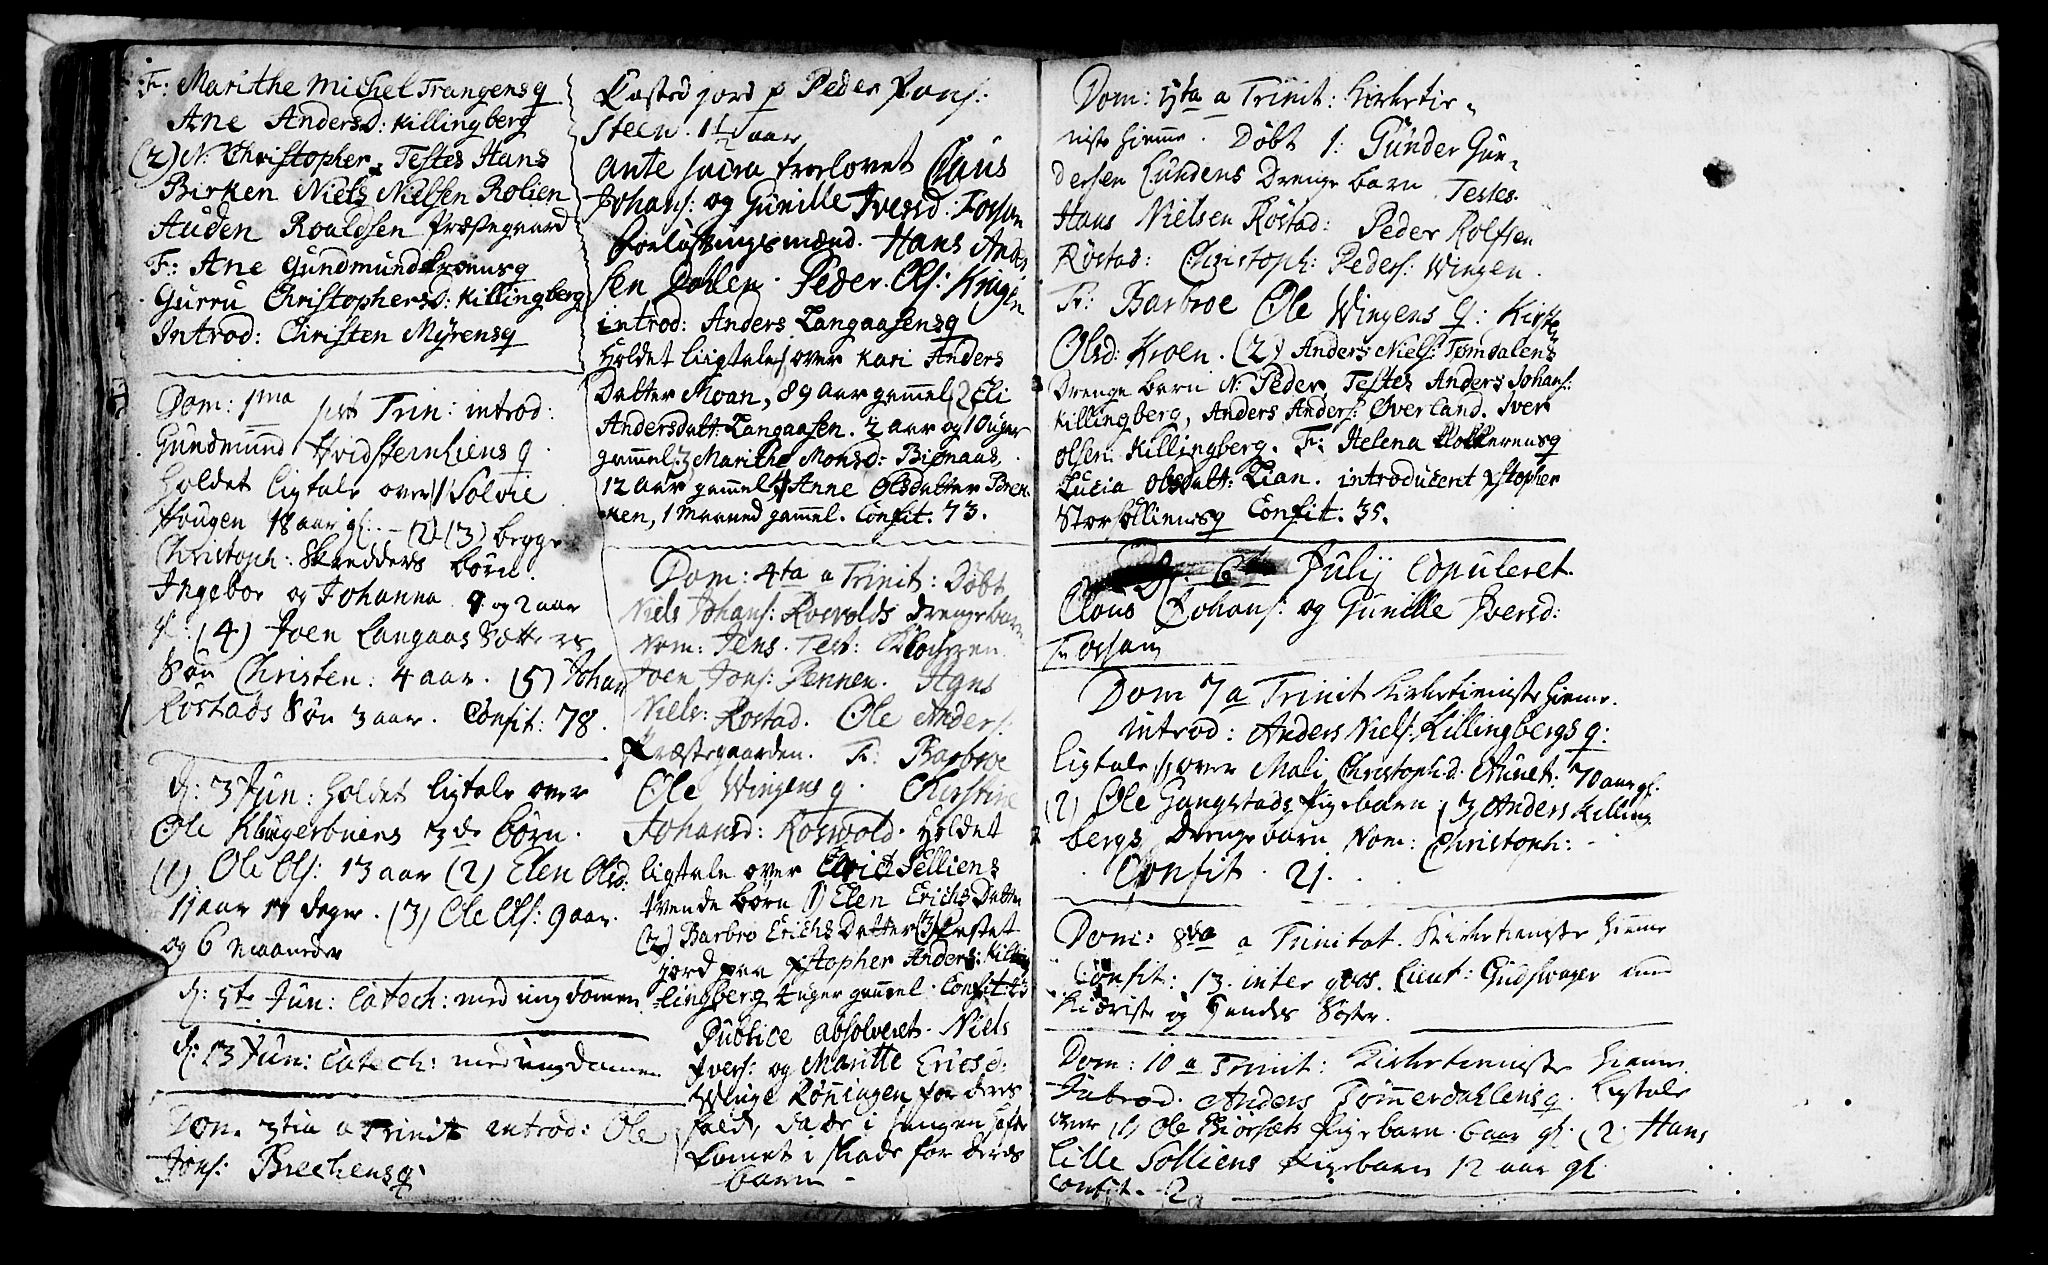 F: Marithe Michel Trangens q
Ane Andersd: Killingberg
(2) N: Christopher, Testes Hans
Birken Niels Nielsen Rolien
Auden Roaldsen Præstegaard
F: Ane Gundmund
Gurru Christophersd: Killingberg
Introd: Christen Myrens q
Dom: 1ma post Trin: introd:
Gundmund Hvidsteenliens q
Holdet ligtale over 1) Solvie
Hougen 18 aar gl: - (2) (3) begge
Christoph: Skredders børn.
Ingebor og Johanna 9 og 2 aar
gl: (4) Joen Langaas Sætteres
Søn Christen: 4 aar. (5) Johan
Røstads Søn 3 aar. Confit: 78.
d: 3 Jun: holdet ligtale over
Ole Klingerbuens 3de børn.
(1) Ole Ols: 13 aar (2) Elen Olsd:
11 aar 14 dager. (3) Ole Ols: 9 aar
og 6 maaneder
d: 5te Jun: Catech: med ungdomen.
d: 13 Jun: Catech: med ungdomen
Dom. 3tia a Trinit introd: Ole
Jons: Brechens q
Kasted jord p Peder
Steen. 1½ aar
Ante sacra troelovet Claus
Johans: og Gunille Iversd: Fossum
Forlovningsmænd. Hans Anders
sen Dallen. Peder Ols: Krigen
introd: Anders Langaasens q
Holdet liigtale 1) over Kari Anders
Datter Moan, 89 aar gamel 2) Eli
Andersdatt: Langaasen. 2 aar og 10 uger
gamel: 3) Marithe Monsd: Bionaas
12 aar gamel 4) Anne Olsdatter Bren
ken, 1 Maaned gammel. Confit. 73.
Dom: 4ta a Trinit: Døbt
Niels Johans: Rosvolds drengebarn
Nom: Jens. Test: Klochren
Joen Jons: Pennen. Hans
Niels: Rostad. Ole Anders:
Præstegaarden. F: Barbroe
Ole Wingens q. Cherstine
Johansd: Roswold. Holdet
ligtale over Erich Selliens
tvende børn (1) Elen Erichs Datter
(2) Barbro Erichs Datter (3) Kastet
jord paa Xstopher Anders: Kil
lingberg 4 uger gamel. Confit
Publice absolveret. Niels
Ivers: og Maritte Ericsd:
Winge Rønningen for deres
fald, da de i sengen hafde
komet i skade for deres
barn
Dom: 5ta a Trinit: Kirketie-
niste hieme. Døbt 1: Gunder Gun-
dersen Lundens Drenge barn. Testes
Hans Nielsen Røstad: Peder Rolfsen
Røstad: Christoph: Peders: Wingen.
F: Barbroe Ole Wingens q: Kirsten
Olsd: Kroen. (2) Anders Niels: Tømdalens
Drenge barn N: Peder, Testes Anders Johans:
Killingberg, Anders Anders: Overland. Iver
Olsen Killingberg. F: Helena Klokkerens q
Lucia Olsdatt: Lian. introduceret Xstopher
Storsolliens q Confit: 35.
D: 6te Julij Copuleret
Claus Johans: og Gunille Iversd:
Fossum
Dom 7 a Trinit Kirketieniste hieme.
introd: Anders Niels: Killingbergs q:
Ligtale 1) over Mali Christoph.d. Aunet: 70 aar gl.
(2) Ole Gangstads Pigebarn (3) Anders Killing
bergs Drengebarn Nom: Christoph:
Confit. 21.
Dom: 8va a Trinitat. Kirketieniste hieme
Confit: 13. inter qvos. Lieut: Gudswager med
Kiæriste og hendes Søster.
Dom: 10 a Trinit: Kirketieniste hieme
Introd. Anders Tømmerdahlens q. Ligtale
over (1) Ole Biorsæts Pigebarn 6 aar gl. (2) Hans
Lille Solliens Pigebarn 12 aar gl
Confit. 12